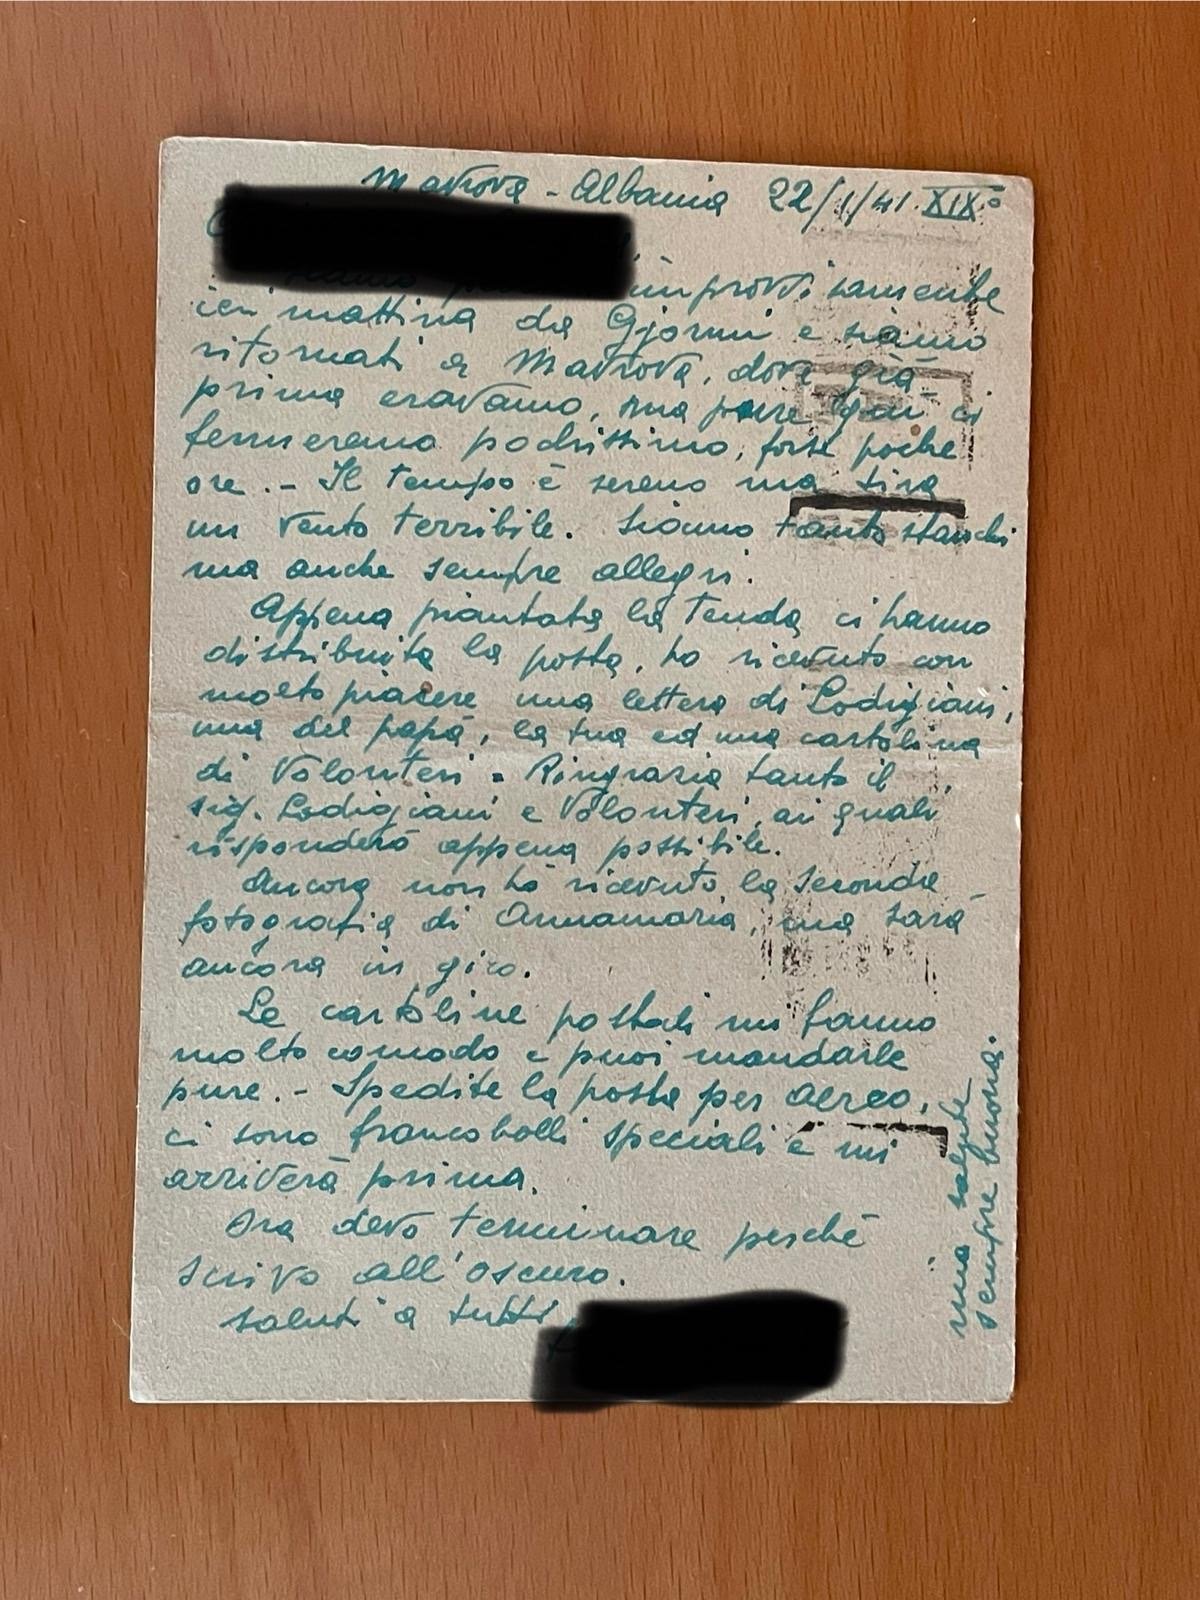 Mavrova - Albania 22/1/41. XIX°
improvvisamente
ieri mattina da Gjormi e siamo
ritornati a Mavrova, dove già
prima eravamo, ma pure qui ci
fermeremo pochissimo, forse poche
ore. - Il tempo è sereno ma tira
un vento terribile. Siamo tanto stanchi
ma anche sempre allegri.
Appena piantata la tenda ci hanno
distribuita la posta, ho ricevuto con
molto piacere una lettera di Lodigiani,
una del papà, la tua ed una cartolina
di Volonteri - Ringrazia tanto il
sig. Lodigiani e Volonteri, ai quali
risponderò appena possibile.
Ancora non hò ricevuto la seconda
fotografia di Annamaria, ma sarà
ancora in giro.
Le cartoline postali mi fanno
molto comodo e puoi mandarle
pure. - Spedite la posta per aereo,
ci sono francobolli speciali e mi
arriverà prima.
Ora devo terminare perchè
scrivo all'oscuro.
Saluti a tutti
mia salute
sempre buona.